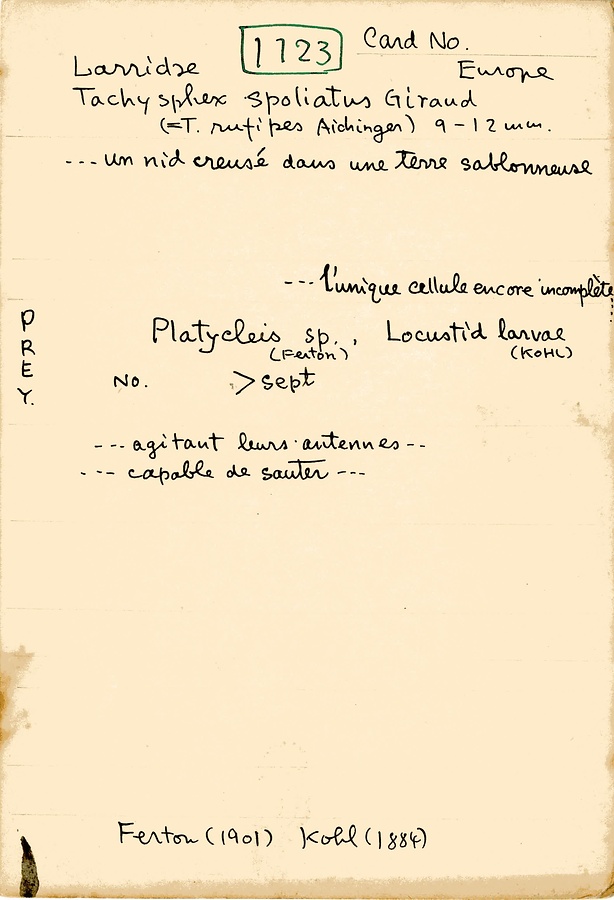 1723 Card No.
Larridae Europe
Tachysphex spoliatus Giraud
(=T. rufipes Aichinger) 9-12 mm.
--- un nid creusé dans une terre sablonneuse
--- l'unique cellule encore incomplète
PREY.
Platycleis sp., Locustid larvae
(Ferton) (KOHL)
No. >sept
--- agitant leurs antennes --
--- capable de sauter ---
Ferton (1901) Kohl (1884)